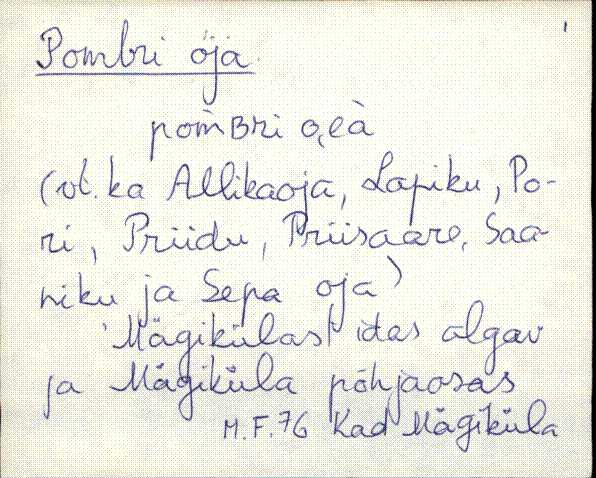 Pombri oja
pom̀ʙri o̭eà
(vt. ka Allikaoja, Lapiku, Po-
ri, Priidu, Priisaare, Saa-
niku ja Sepa oja)
Mägikülast idas algav
ja Mägiküla põhjaosas
M.F. 76 Kad Mägiküla